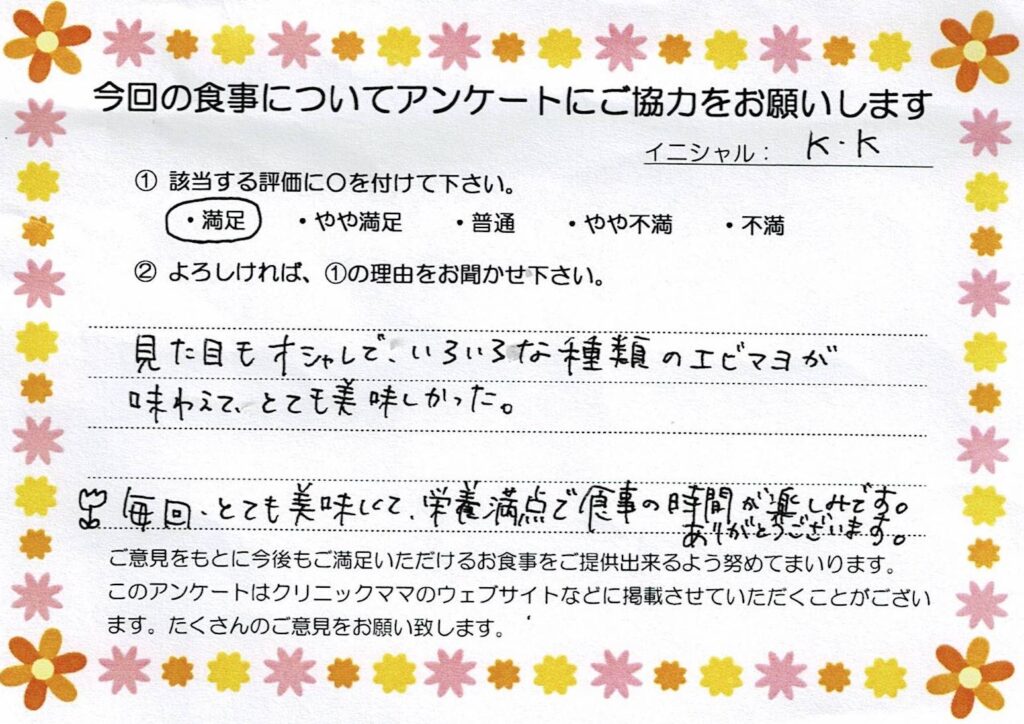 今回の食事についてアンケートにご協力をお願いします
イニシャル： K・K
① 該当する評価に〇を付けて下さい。
・満足 ・やや満足 ・普通 ・やや不満 ・不満
② よろしければ、①の理由をお聞かせ下さい。
見た目もオシャレで、いろいろな種類のエビマヨが
味わえて、とても美味しかった。
毎回、とても美味しくて、栄養満点で食事の時間が楽しみです。
ありがとうございます。
ご意見をもとに今後もご満足いただけるお食事をご提供出来るよう努めてまいります。
このアンケートはクリニックママのウェブサイトなどに掲載させていただくことがござい
ます。たくさんのご意見をお願い致します。